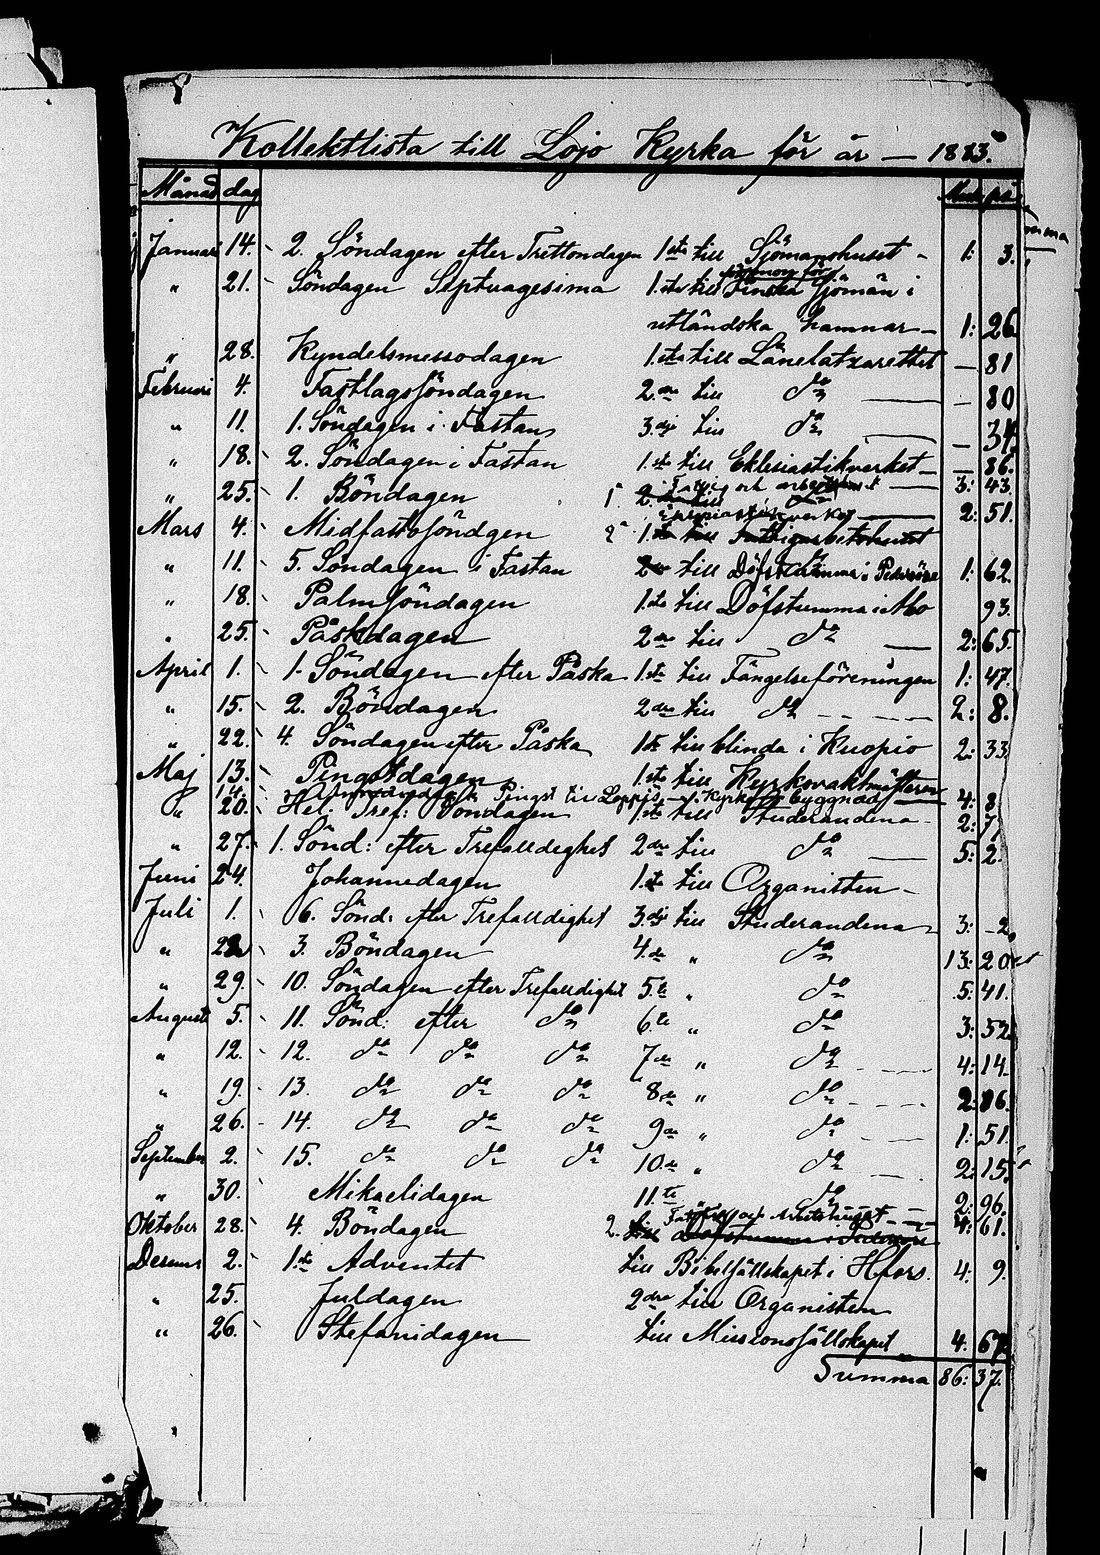 Kollektlista till Lojo Kyrka för år — 1883.
Månad dag Mark pni
Januari 14. 2. Söndagen efter Trettondagen 1sta till Sjömanshuset - 1: 3.
" 21. Söndagen Septuagesima 1.sta till Finska Sjömän i
utländska hamnar - 1: 26
" 28. Kyndelsmessodagen 1.sta till Länelatzarettet — 81
Februari 4. Fastlagssöndagen 2.dra till do — 80
" 11. 1. Söndagen i Fastan 3.dje till do — 34.
" 18. 2. Söndagen i Fastan 1.sta till Eklesiastikverket — 86.
" 25. 1. Böndagen 1. Fattig och 3: 43.
Eklesiastikverket 2: 51.
Mars 4. Midfastosöndgen 2 1. till Fattigarbetshuset
" 11. 5. Söndagen i Fastan till Döfstumma i 1: 62.
" 18. Palmsöndagen 1.sta till Döfstumma i Åbo 93.
" 25. Påskdagen 2dra till do 2: 65.
April 1. 1. Söndagen efter Påska 1sta till Fängelseföreningen 1: 47.
" 15. 2. Böndagen 2dra till do 2: 8.
" 22. 4. Söndagen efter Påska 1sta till blinda i Kuopio 2: 33.
Maj 13. Pingstdagen 1.sta till Kyrkovaktmästaren
14. Annandag Pingst till Loppis Kyrko byggnad 4: 8
" 20. Hel. Tref: Söndagen 1sta till Studerandena 2: 7
" 27. 1. Sönd: efter Trefalldighet 2dra till do 5: 2.
Juni 24. Johannedagen 1.sta till Organisten -
Juli 1. 6. Sönd: efter Trefalldighet 3.dje till Studerandena 3: -2.
" 22 3. Böndagen 4.de " do 13: 20
" 29. 10. Söndagen efter Trefalldighet 5.te " do 5: 41.
Augusti 5. 11. Sönd: efter do 6.te " do 3: 52
" 12. 12. do do do 7de " do 4: 14
" 19. 13. do do do 8de " do 2: 86.
" 26. 14. do do do 9de " do 1: 51.
September 2. 15. do do do 10.de " do 2: 15.
" 30. Mikaelidagen 11.te " do 2: 96.
Oktober 28. 4. Böndagen 2. Fattig och Arbetshuset 4: 61.
till Döfstumma i
Decemb 2. 1.sta Adventet till Bibelsällskapet i Hfors. 4: 9.
" 25. Juldagen 2dra till Organisten
" 26. Stefanidagen till Missionssällskapet 4: 67
Summa 86: 37.